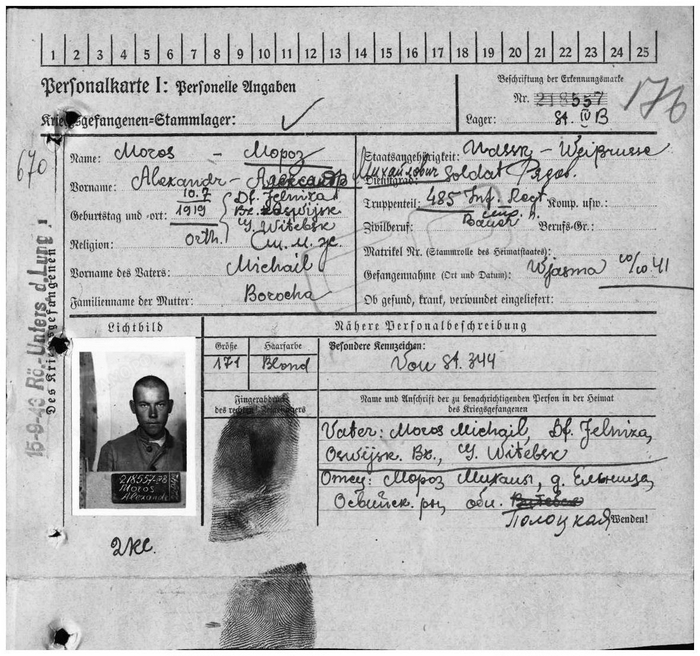 1 2 3 4 5 6 7 8 9 10 11 12 13 14 15 16 17 18 19 20 21 22 23 24 25
Personalkarte I: Personelle Angaben
Beschriftung der Erkennungsmarke
Nr. 218557
176
Kriegsgefangenen=Stammlager:
Lager: St. IV B
670
Name: Moros - Мороз
Vorname: Alexandr - Александр Михайлович
Geburtstag und -ort: 10.7 1919 Df. Jelniza
Bz. Oswijsk
G. Witebsk
Religion: orth. См. м. ж.
Vorname des Vaters: Michail
Familienname der Mutter: Borocha
Staatsangehörigkeit: Udssr - Weißrusse
Dienstgrad: Soldat Рядов.
Truppenteil: 485 Inf. Regt Komp. usw.:
Zivilberuf: Bauer Berufs-Gr.:
Matrikel Nr. (Stammrolle des Heimatstaates):
Gefangennahme (Ort und Datum): Wjasma 10/10 41
Ob gesund, krank, verwundet eingeliefert:
15-9-43 Rö.-Unters. d. Lung
Des Kriegsgefangenen
Lichtbild
Nähere Personalbeschreibung
Größe Haarfarbe Besondere Kennzeichen:
171 Blond Von St. 344
Fingerabdruck
des rechten Zeigefingers
Name und Anschrift der zu benachrichtigenden Person in der Heimat
des Kriegsgefangenen
Vater: Moros Michail, Df. Jelniza,
Oswijsk. Bz., G. Witebsk
Отец: Мороз Михаил, д. Ельница,
Освейск. рн, обл. Витебск
Полоцкая
Wenden!
218557
Moros
Alexander
2 Kl.